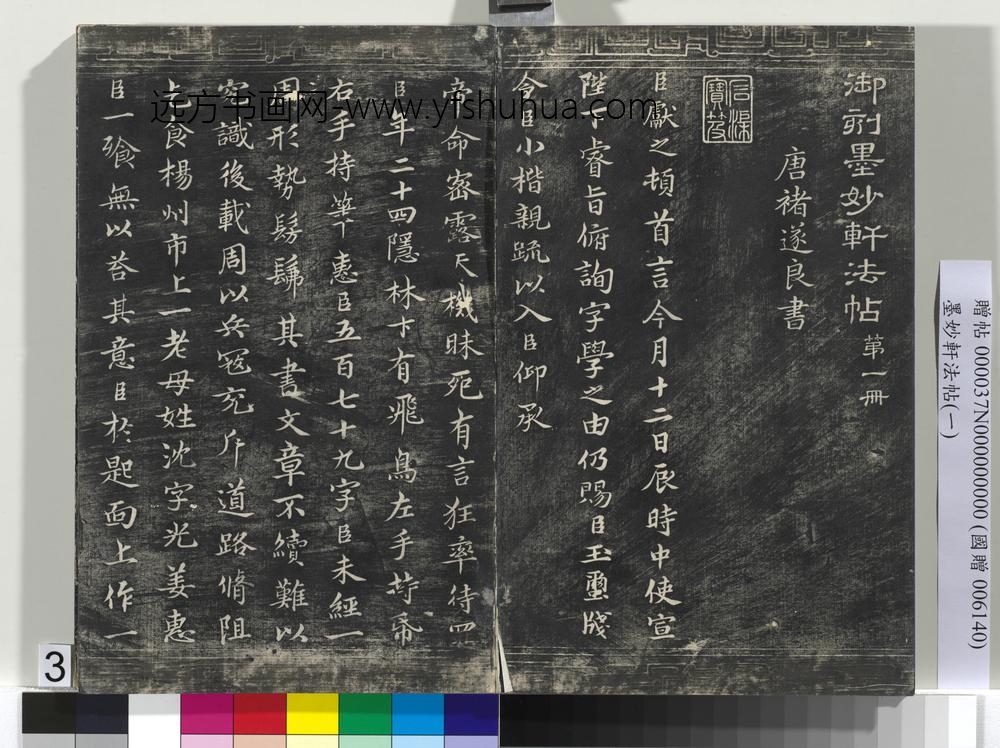 御刻墨妙軒法帖 第一冊
唐褚遂良書
臣獻之頓首言今月十二日辰時中使宣
陛下睿旨俯詢字學之由仍賜臣玉璽牋
令臣小楷親疏以入臣仰承
帝命密露天機昧死有言狂率待罪
臣年二十四隱林下有飛鳥左手持帋
右手持筆惠臣五百七十九字臣未經一
周形勢髣髴其書文章不續難以
究識後載周以兵寇充斥道路脩阻
乞食楊州市上一老母姓沈字光姜惠
臣一飡無以荅其意臣於匙面上作一
远方书画网-www.yfshuhua.com
3
贈帖 000037N000000000 (國贈 006140)
墨妙軒法帖(一)